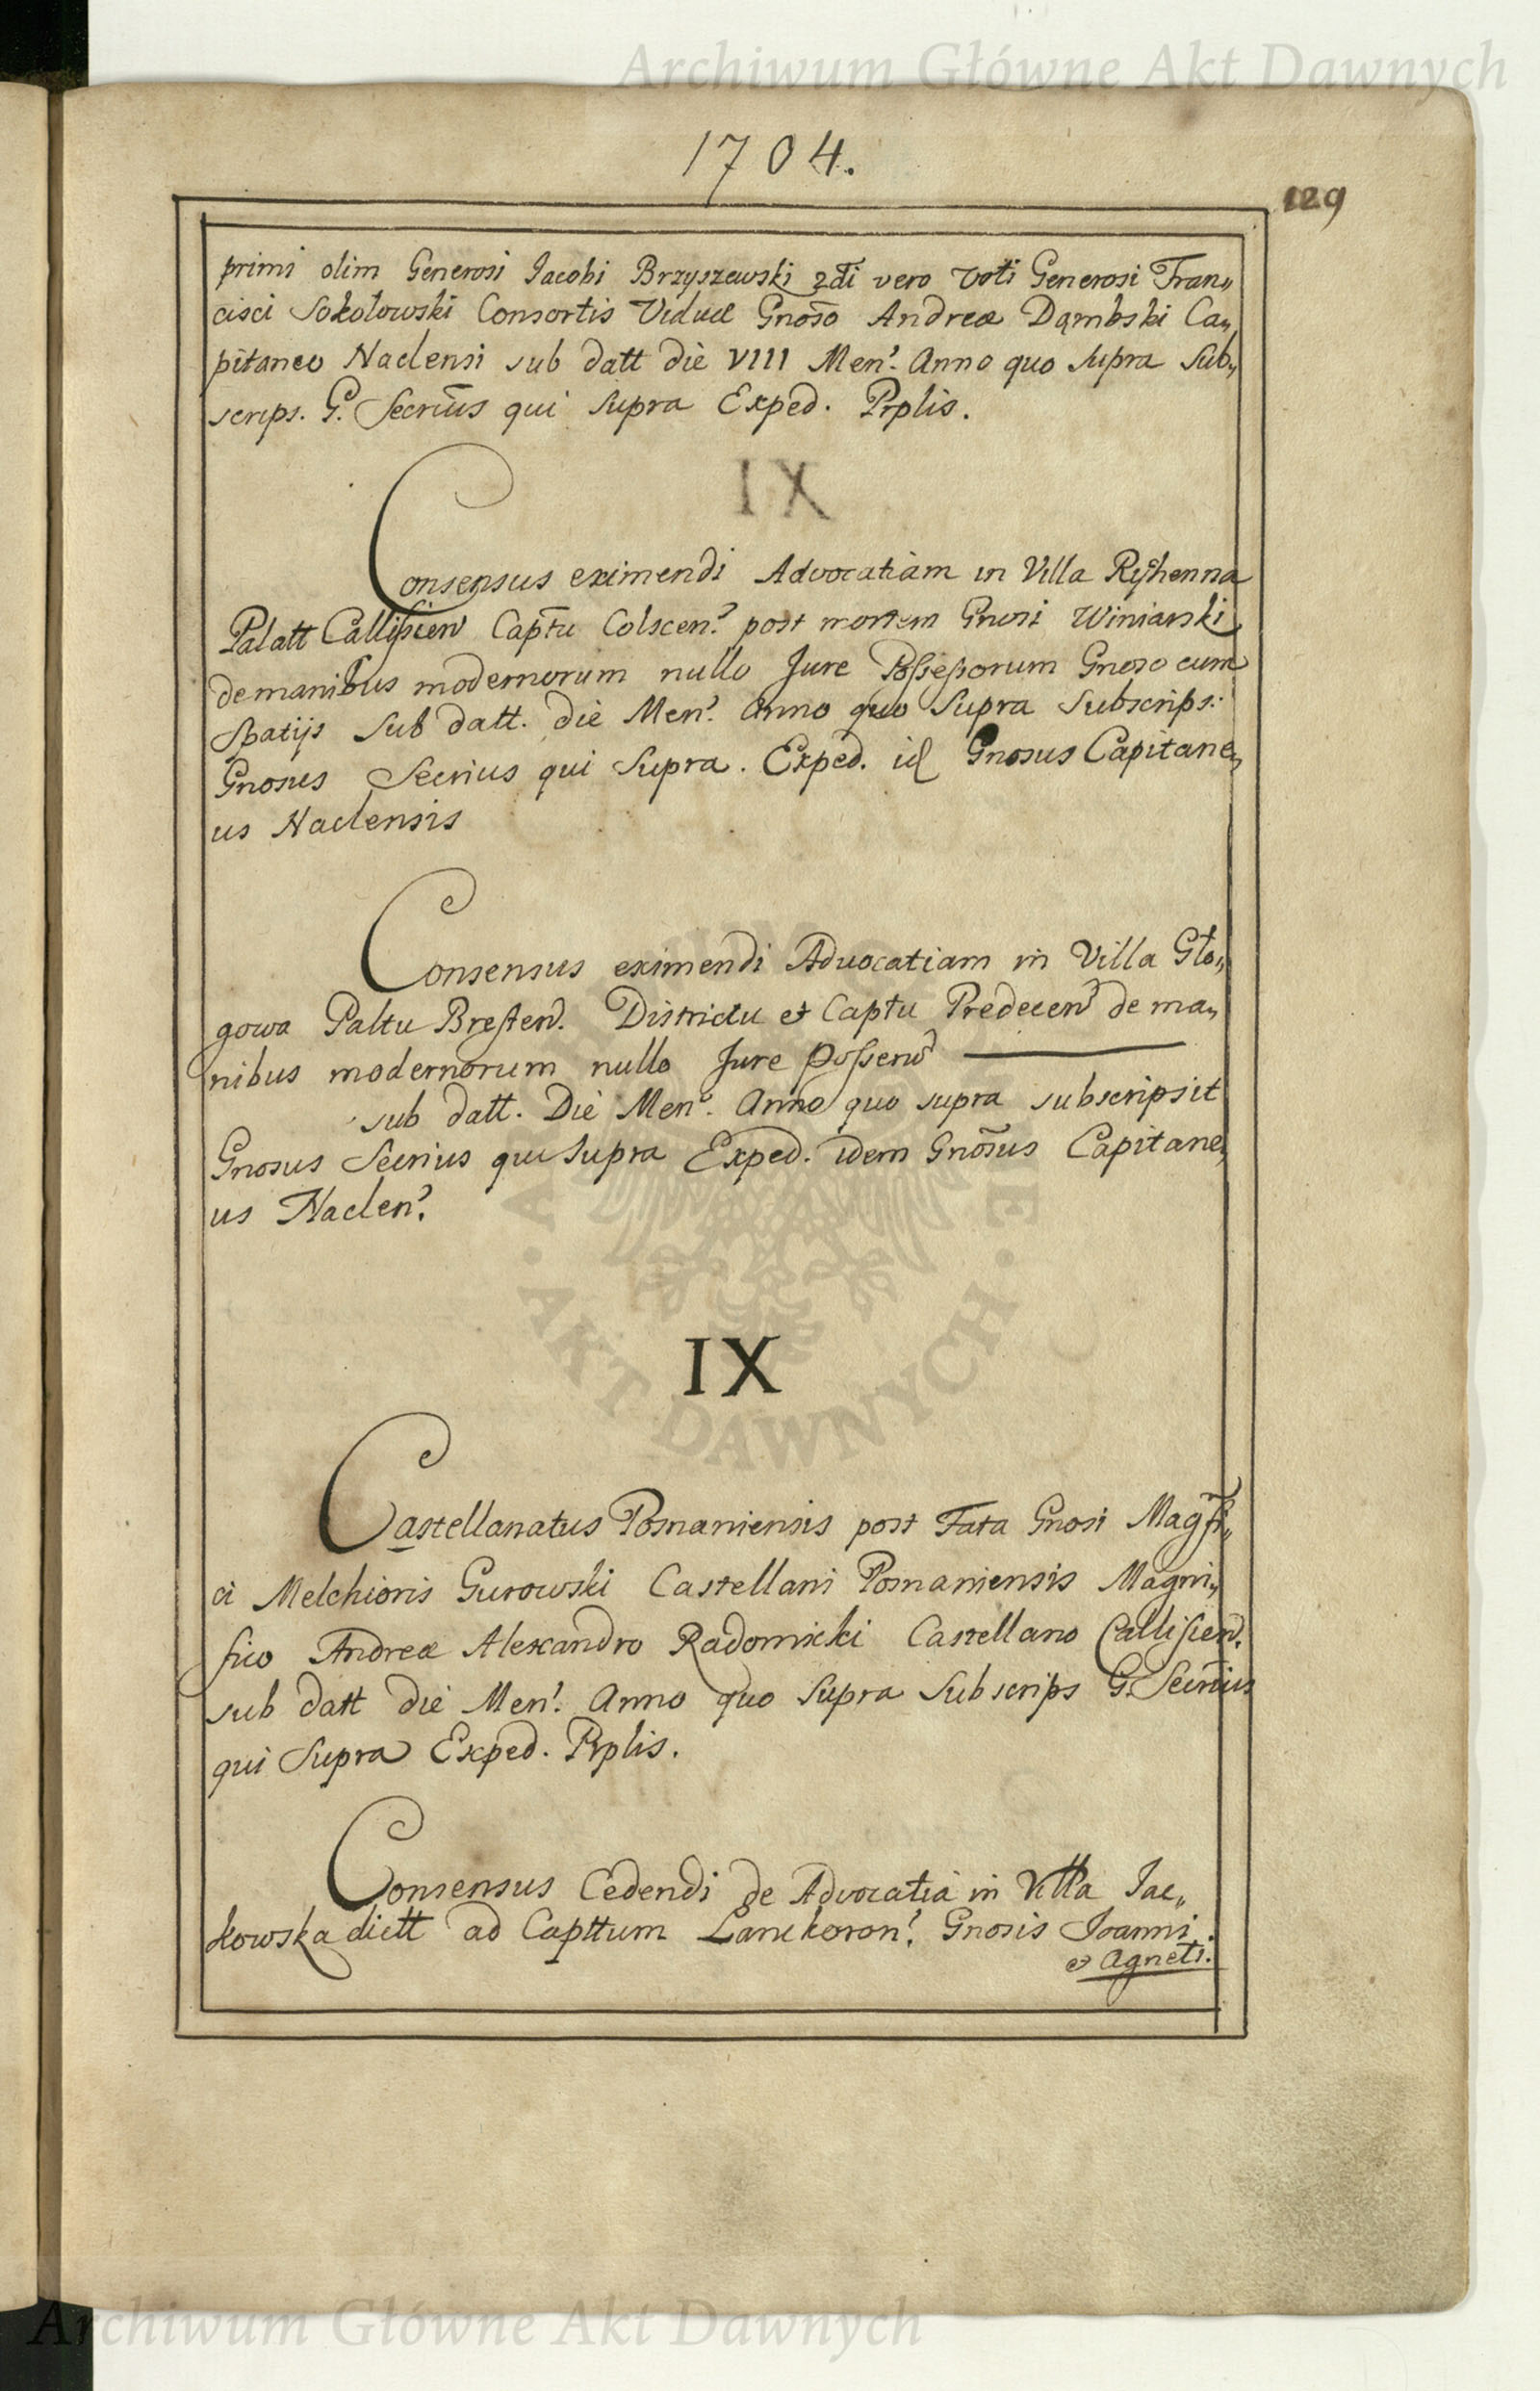 Archiwum Główne Akt Dawnych
1704.
129
primi olim Generosi Jacobi Brzyszewski 2di vero Voti Generosi Fran„
cisci Sokołowski Consortis Viduæ Gnoso Andreæ Dąmbski Ca„
pitaneo Naclensi sub datt die VIII Men? Anno quo supra Sub„
scrips. G. Secrius qui supra Exped. Prplis.
IX
Consensus eximendi Advocatiam in Villa Ryshenna
Palatt Callisien Captu Colscen? post mortem Gnosi Winiarski
de manibus modernorum nullo Jure Possessorum Gnoso cum
Spatijs sub datt. die Men? Anno quo Supra Subscrips:
Gnosus Secrius qui supra. Exped. id Gnosus Capitane„
us Naclensis
Consensus eximendi Advocatiam in Villa Gło„
gowa Paltu Bresten. Districtu et Captu Predecen de ma„
nibus modernorum nullo Jure Possen
sub datt. Die Men? Anno quo supra subscripsit
Gnosus Secrius qui supra Exped. idem Gnosus Capitane„
us Naclen?
IX
Castellanatus Posnaniensis post Fata Gnosi Magfi„
ci Melchioris Gurowski Castellani Posnaniensis Magni„
fico Andreæ Alexandro Radomicki Castellano Callisien.
sub datt die Men? Anno quo supra Subscrips G. Secrius
qui supra Exped. Prplis.
Consensus Cedendi de Advocatia in Villa Jac„
kowska dictt ad Capttum Lanckoron? Gnosis Joanni
et Agneti.
AKT DAWNYCH
Archiwum Główne Akt Dawnych